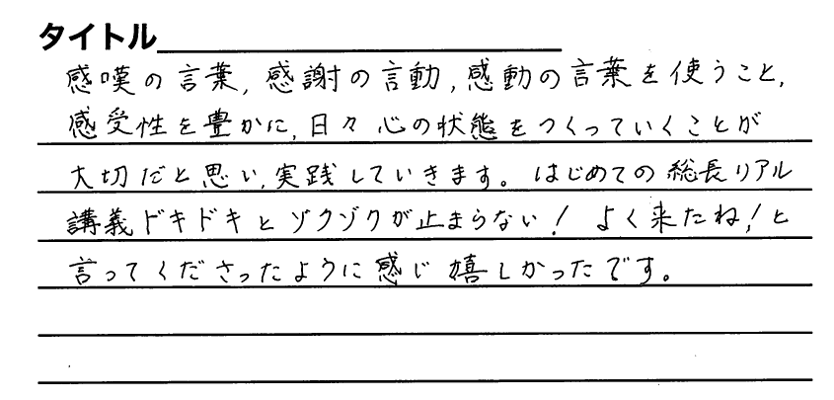 タイトル
感嘆の言葉, 感謝の言動, 感動の言葉を使うこと,
感受性を豊かに, 日々 心の状態をつくっていくことが
大切だと思い, 実践していきます。はじめての総長リアル
講義ドキドキとゾクゾクが止まらない! よく来たね! と
言ってくださったように感じ 嬉しかったです。